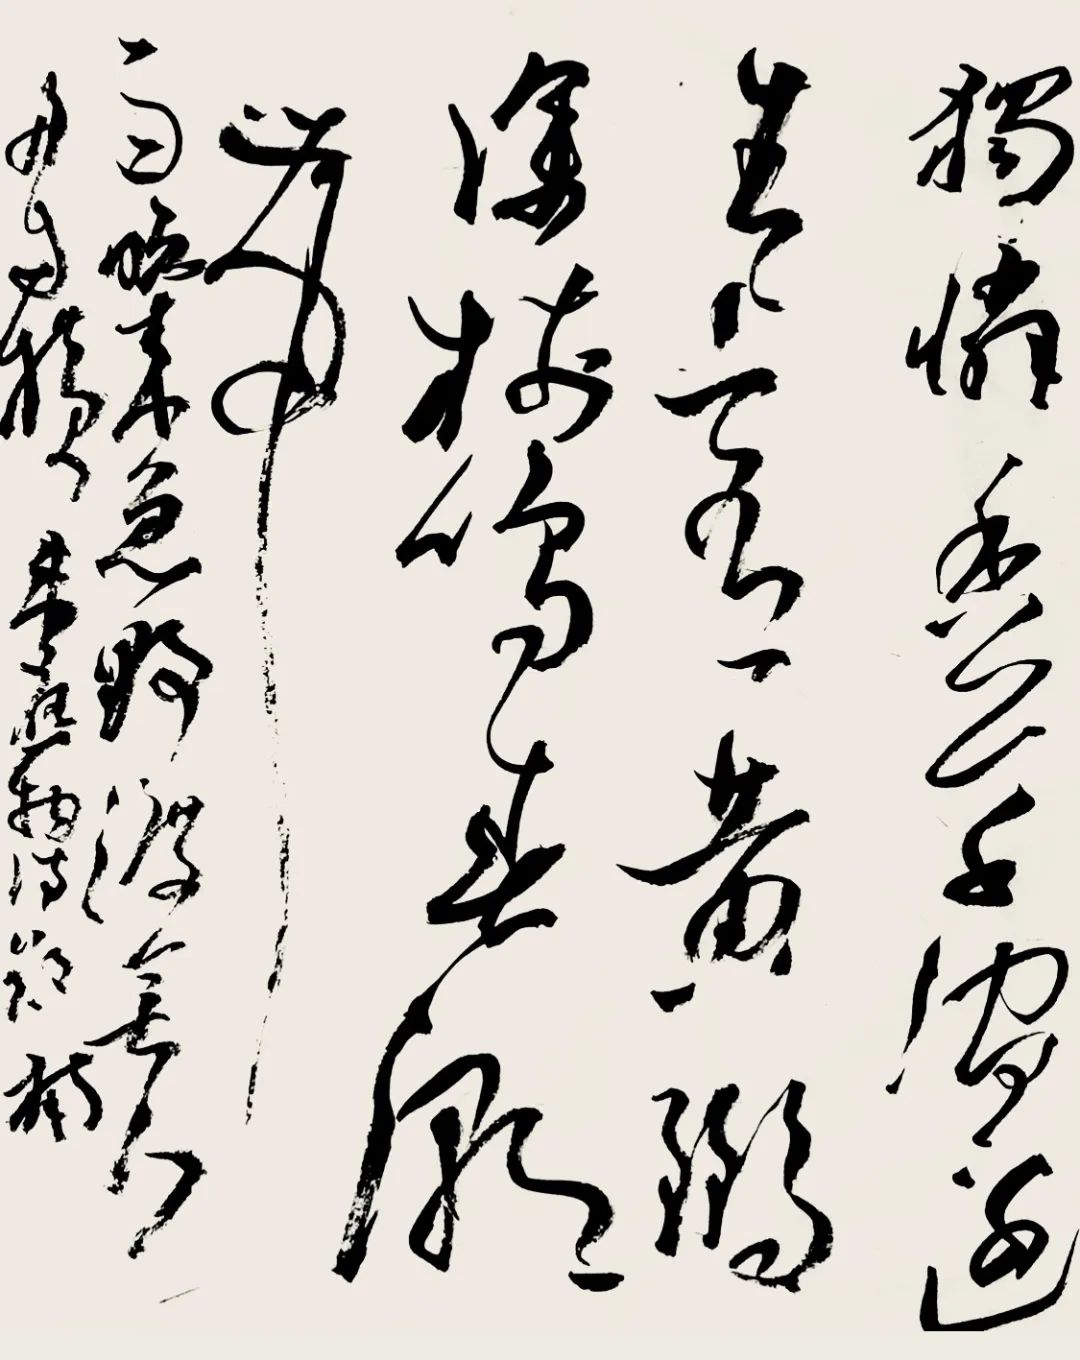 獨憐幽草澗邊
生上有黃鸝
深樹鳴春潮
帶
雨晚來急野渡無人
舟自橫 韋應物詩